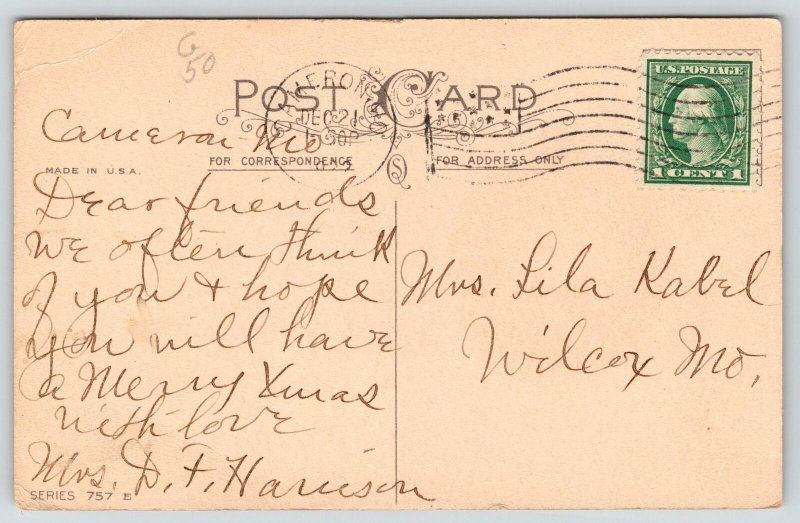 G
50
POST CARD
CAMERON MO
DEC 2
U.S. POSTAGE
1 CENT 1
Cameron Mo
FOR CORRESPONDENCE
FOR ADDRESS ONLY
MADE IN U.S.A.
Dear friends
We often think
of you & hope
you will have
a Merry Xmas
with love
Mrs. D. F. Harrison
Mrs. Lila Kabel
Wilcox Mo.
SERIES 757 E